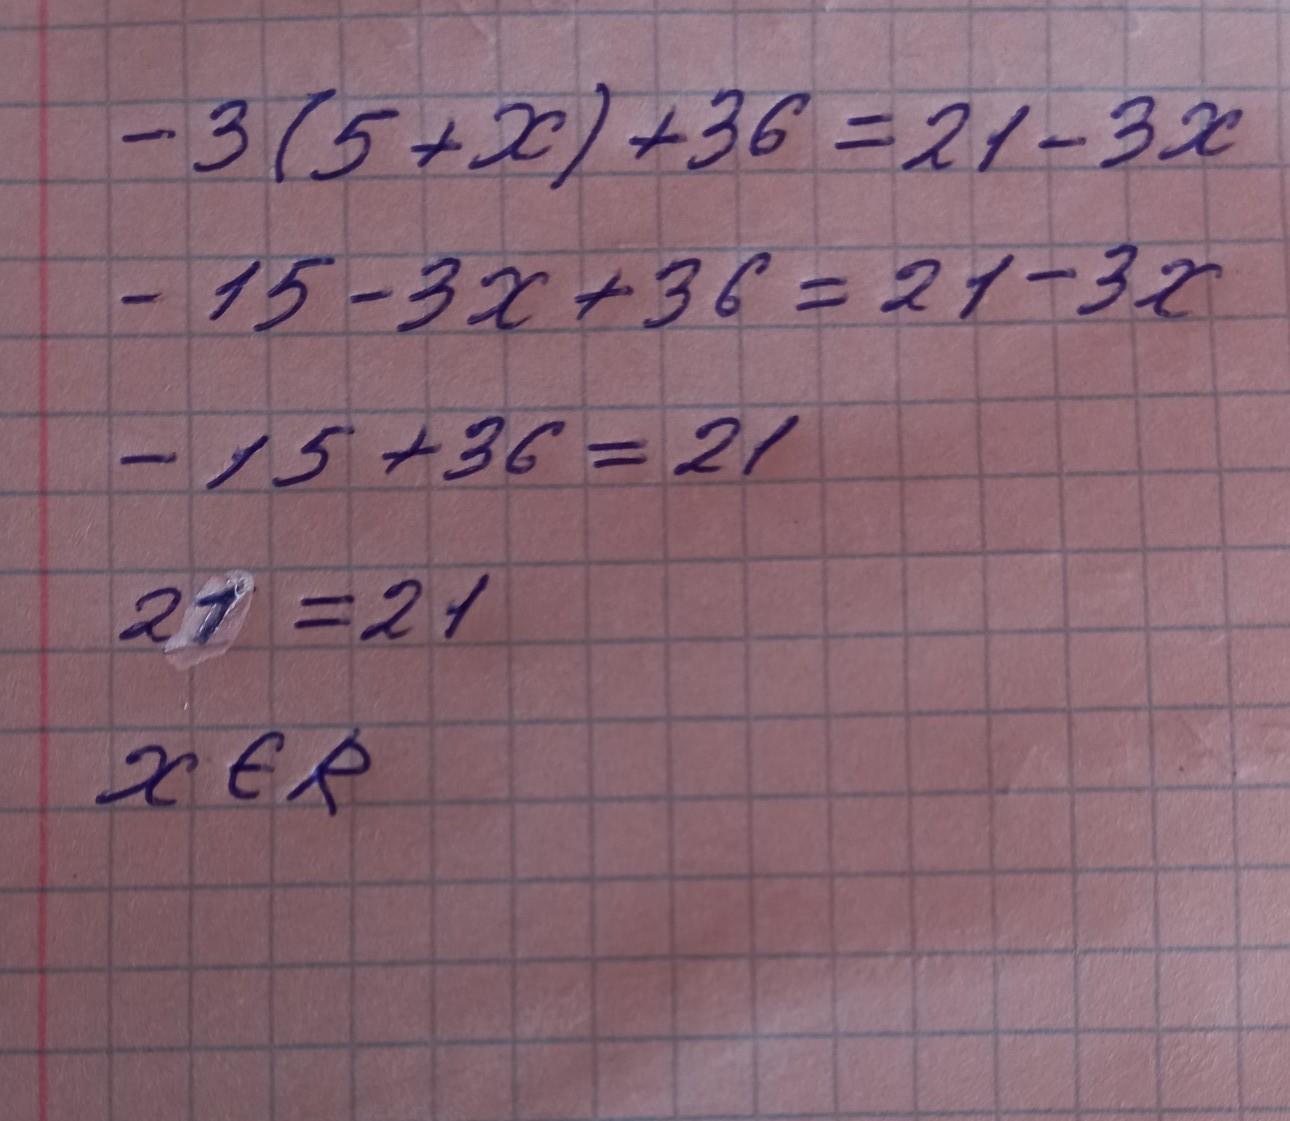 -3(5+x)+36=21-3x
-15-3x+36=21-3x
-15+36=21
21=21
x∈R